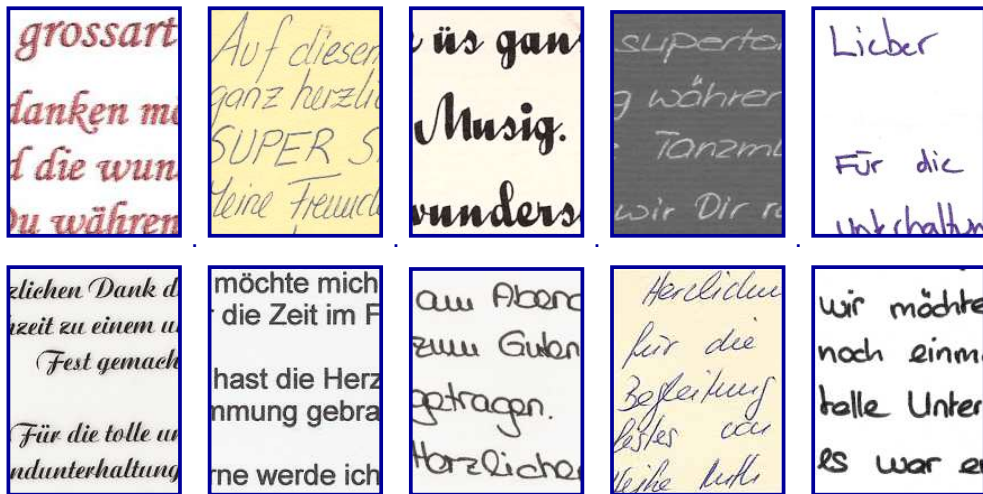 grossart
danken me
d die wun
Du währen
Auf diesen
ganz herzli
SUPER S
Meine Freunde
üs gan
Musig.
wunders
superto
g währen
Tanzmu
wir Dir r
Lieber
Für die
unterhaltun
zlichen Dank d
hzeit zu einem u
Fest gemach
Für die tolle un
ndunterhaltung
möchte mich
die Zeit im F
hast die Herz
mmung gebra
rne werde ich
am Abend
zum Guten
getragen.
Herzliche
Herzlichen
für die
Begleitung
von
wir möchte
noch einm
tolle Unter
es war e